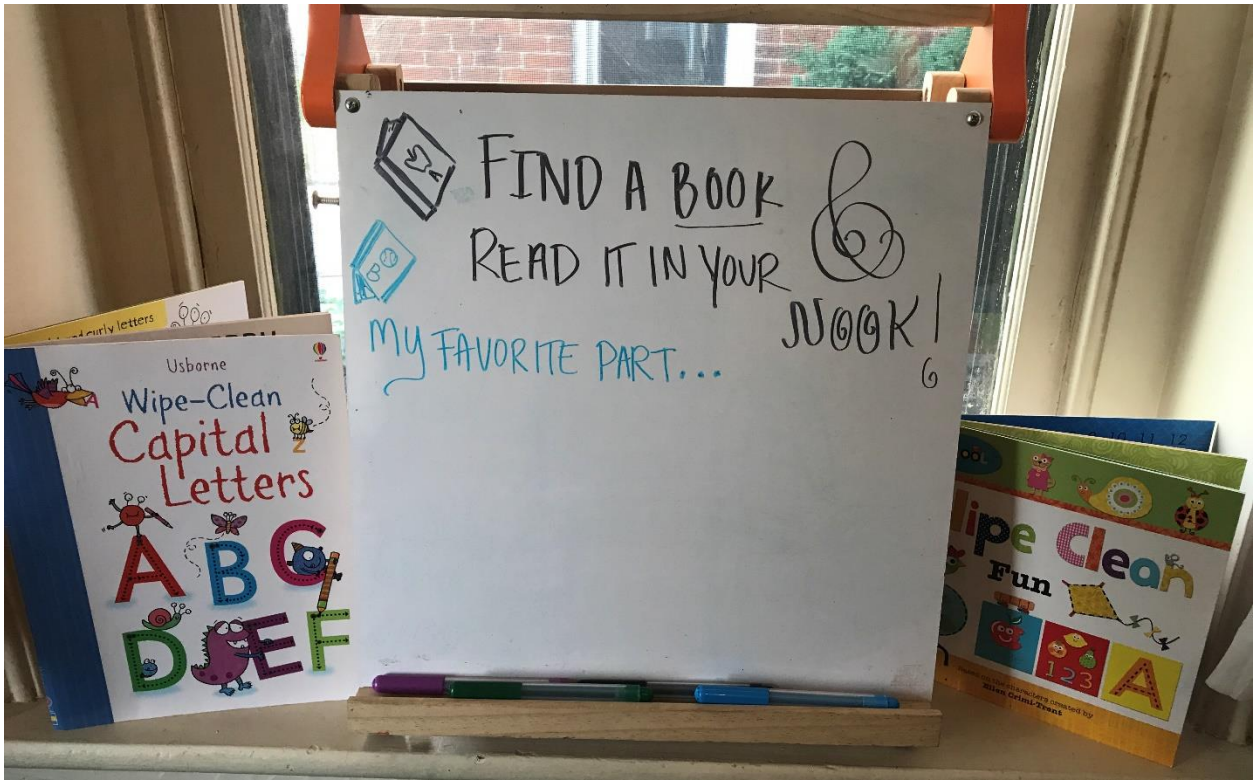 FIND A BOOK &
READ IT IN YOUR
NOOK!
MY FAVORITE PART...
curly letters
Usborne
Wipe-Clean
Capital
Letters
A
Z
A B C
D E F
10 11 12
Wipe Clean
Fun
123
A
Based on the characters created by
Ellen Crimi-Trent